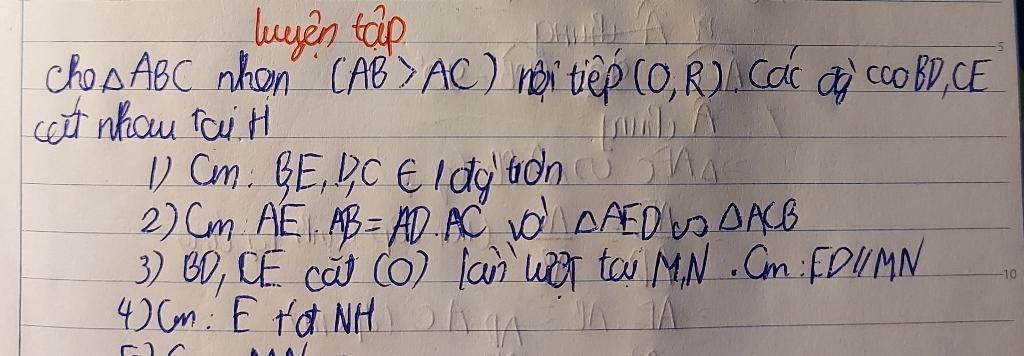 luyện tập
cho △ABC nhọn (AB > AC) nội tiếp (O, R). Các đg cao BD, CE
cắt nhau tại H
1) Cm: B,E, D,C ∈ 1 đg tròn
2) Cm: AE. AB = AD. AC và △AED ∽ △ACB
3) BD, CE cắt (O) lần lượt tại M,N . Cm: ED // MN
4) Cm: E tđ NH